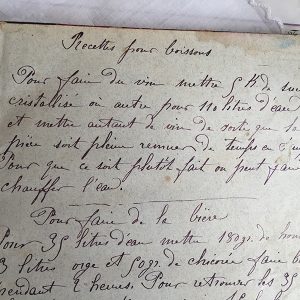 Recettes pour boissons
Pour faire du vin mettre 5 K. de suc
cristalisé ou autre pour 110 litres d'eau
et mettre autant de vin de sorte que la
soit pleine remuer de temps en
Pour que ce soit plutôt fait on peut faire
chauffer l'eau.
Pour faire de la bière
Pour 35 litres d'eau mettre 180gr. de hou
3 litres orge et 50gr. de chicorée faire b
pendant 2 heures. Pour retrouver les 35